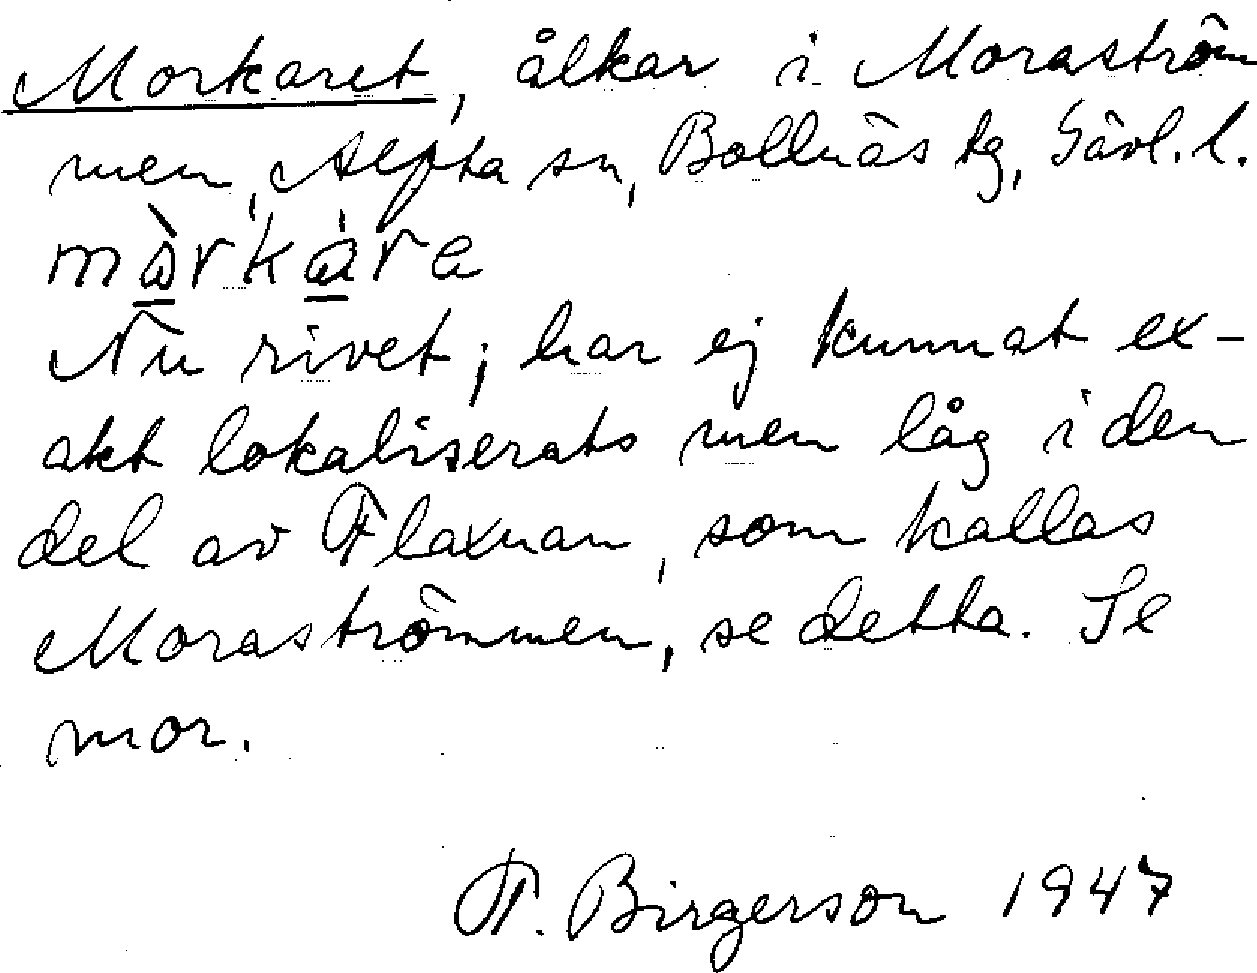 Morkaret, ålkar i Moraström
men, Alfta sn, Bollnäs tg, Gävl. l.
màrkára
Nu rivet; har ej kunnat ex-
akt lokaliserats men låg i den
del av Flaxnan, som kallas
Moraströmmen, se detta. Se
mor.
F. Birgerson 1947